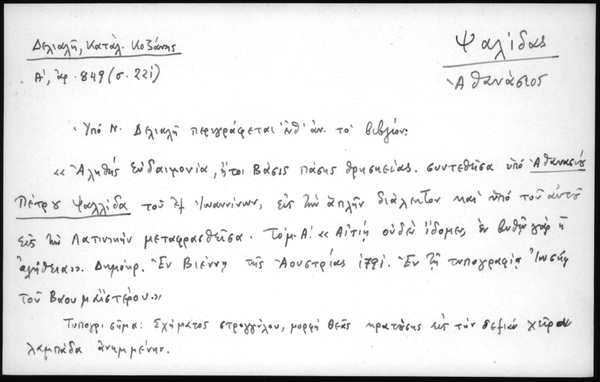 Δελιαλῆ, Κατάλ. Κοζάνης
Ψαλίδας
Α', ἀρ. 849 (σ. 221)
Ἀθανάσιος
Ὑπὸ Ν. Δελιαλῆ περιγράφεται ἐνθ' ἀν. τὸ βιβλίον:
«Ἀληθὴς εὐδαιμονία, ἤτοι Βάσις πάσης θρησκείας. συντεθεῖσα ὑπὸ Ἀθανασίου
Πέτρου Ψαλλίδα τοῦ ἐξ Ἰωαννίνων, εἰς τὴν ἁπλῆν διάλεκτον καὶ ὑπὸ τοῦ αὐτοῦ
εἰς τὴν Λατινικὴν μεταφρασθεῖσα. Τόμ. Α! « Αἰτίη οὐδὲν ἴδομεν, ἐν βυθῷ γὰρ ἡ
ἀλήθεια». Δημόκρ. Ἐν Βιέννῃ τῆς Αουστρίας 1791. Ἐν τῇ τυπογραφίᾳ Ἰωσὴφ
τοῦ Βαουμαϊστέρου.»
Τυπογρ. σῆμα: Σχήματος στρογγύλου, μορφὴ θεᾶς κρατούσης εἰς τὴν δεξιὰν χεῖρα
λαμπάδα ἀνημμένην.